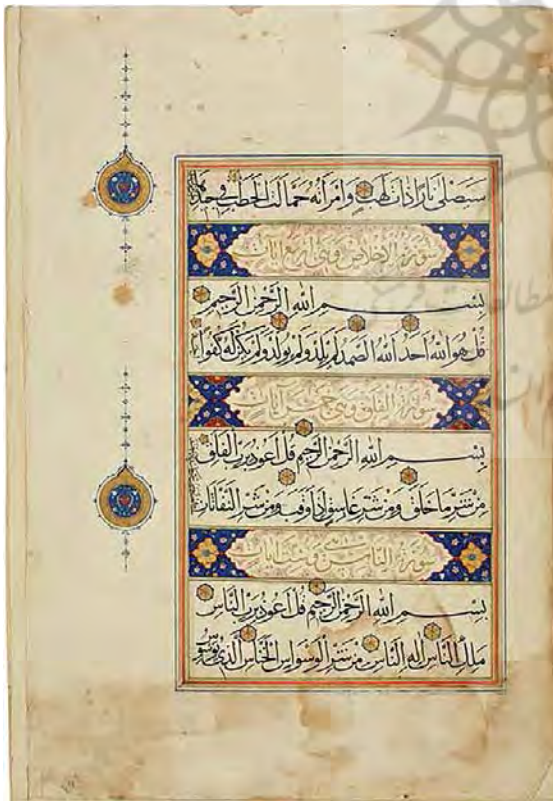 سيصلى نارا ذات لهب وامرأته حمالة الحطب في جيدها
سورة الاخلاص وهي اربع آيات
بسم الله الرحمن الرحيم
قل هو الله احد الله الصمد لم يلد ولم يولد ولم يكن له كفوا
سورة الفلق وهي خمس آيات
بسم الله الرحمن الرحيم قل اعوذ برب الفلق
من شر ما خلق ومن شر غاسق اذا وقب ومن شر النفاثات
سورة الناس وهي ست آيات
بسم الله الرحمن الرحيم قل اعوذ برب الناس
ملك الناس اله الناس من شر الوسواس الخناس الذي يوسوس
مطالعات